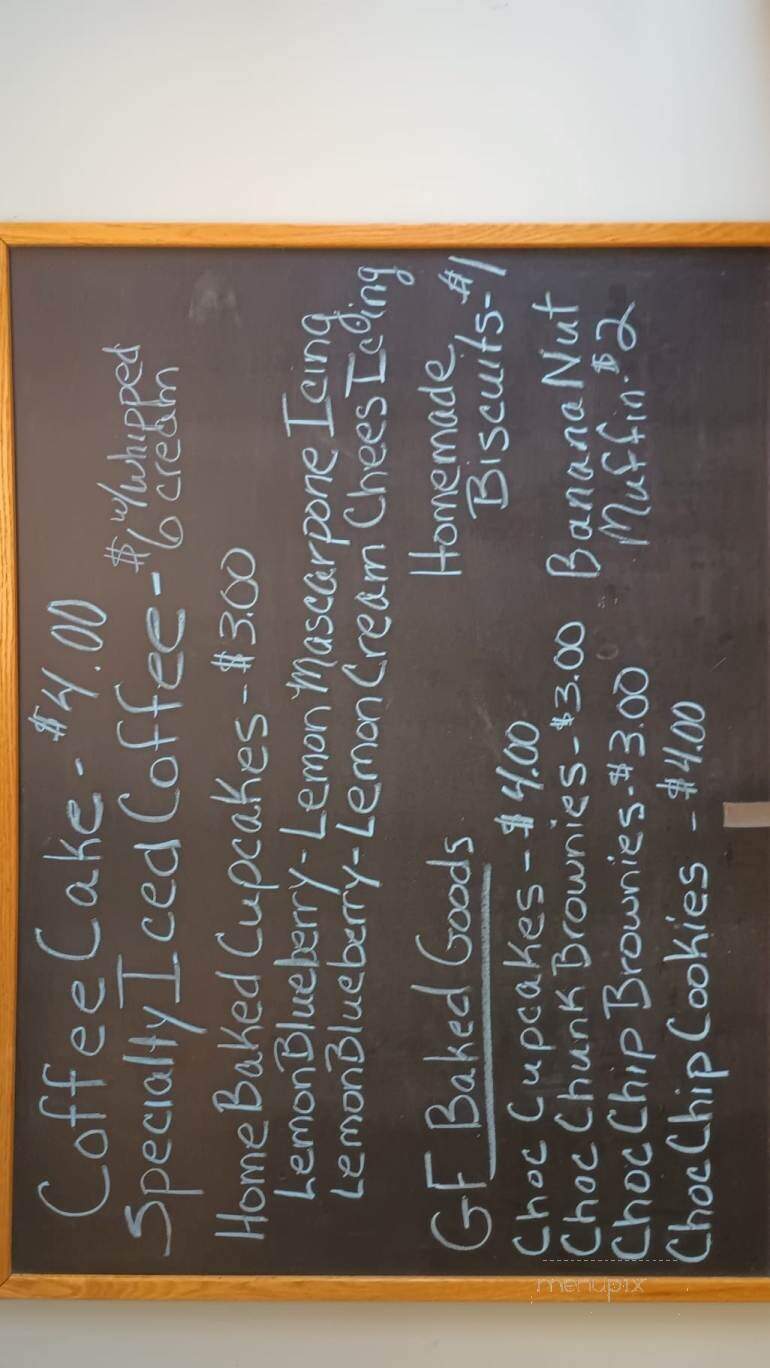 Coffee Cake - $4.00
Specialty Iced Coffee - $6 w/whipped cream
Home Baked Cupcakes - $3.00
Lemon Blueberry - Lemon Mascarpone Icing
Lemon Blueberry - Lemon Cream Chees Icing
GF Baked Goods
Choc Cupcakes - $4.00
Choc Chunk Brownies - $3.00
Choc Chip Brownies - $3.00
Choc Chip Cookies - $4.00
Homemade
Biscuits - $1
Banana Nut
Muffin - $2
menupix